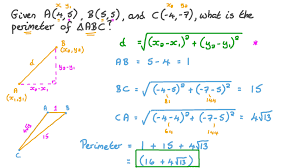 Given A(4,5), B(5,5), and C(-4,-7), what is the
perimeter of △ABC?
x₁ y₁
x₂ y₂
B
(x₂,y₂)
d
y₂-y₁
A
(x₁,y₁)
x₂-x₁
d = √((x₂-x₁)² + (y₂-y₁)²) *
AB = 5-4 = 1
BC = √((-4-5)² + (-7-5)²) = 15
81 144
CA = √((-4-4)² + (-7-5)²) = 4√13
64 144
A 1 B
4√13
15
C
Perimeter = 1 + 15 + 4√13
= (16 + 4√13)